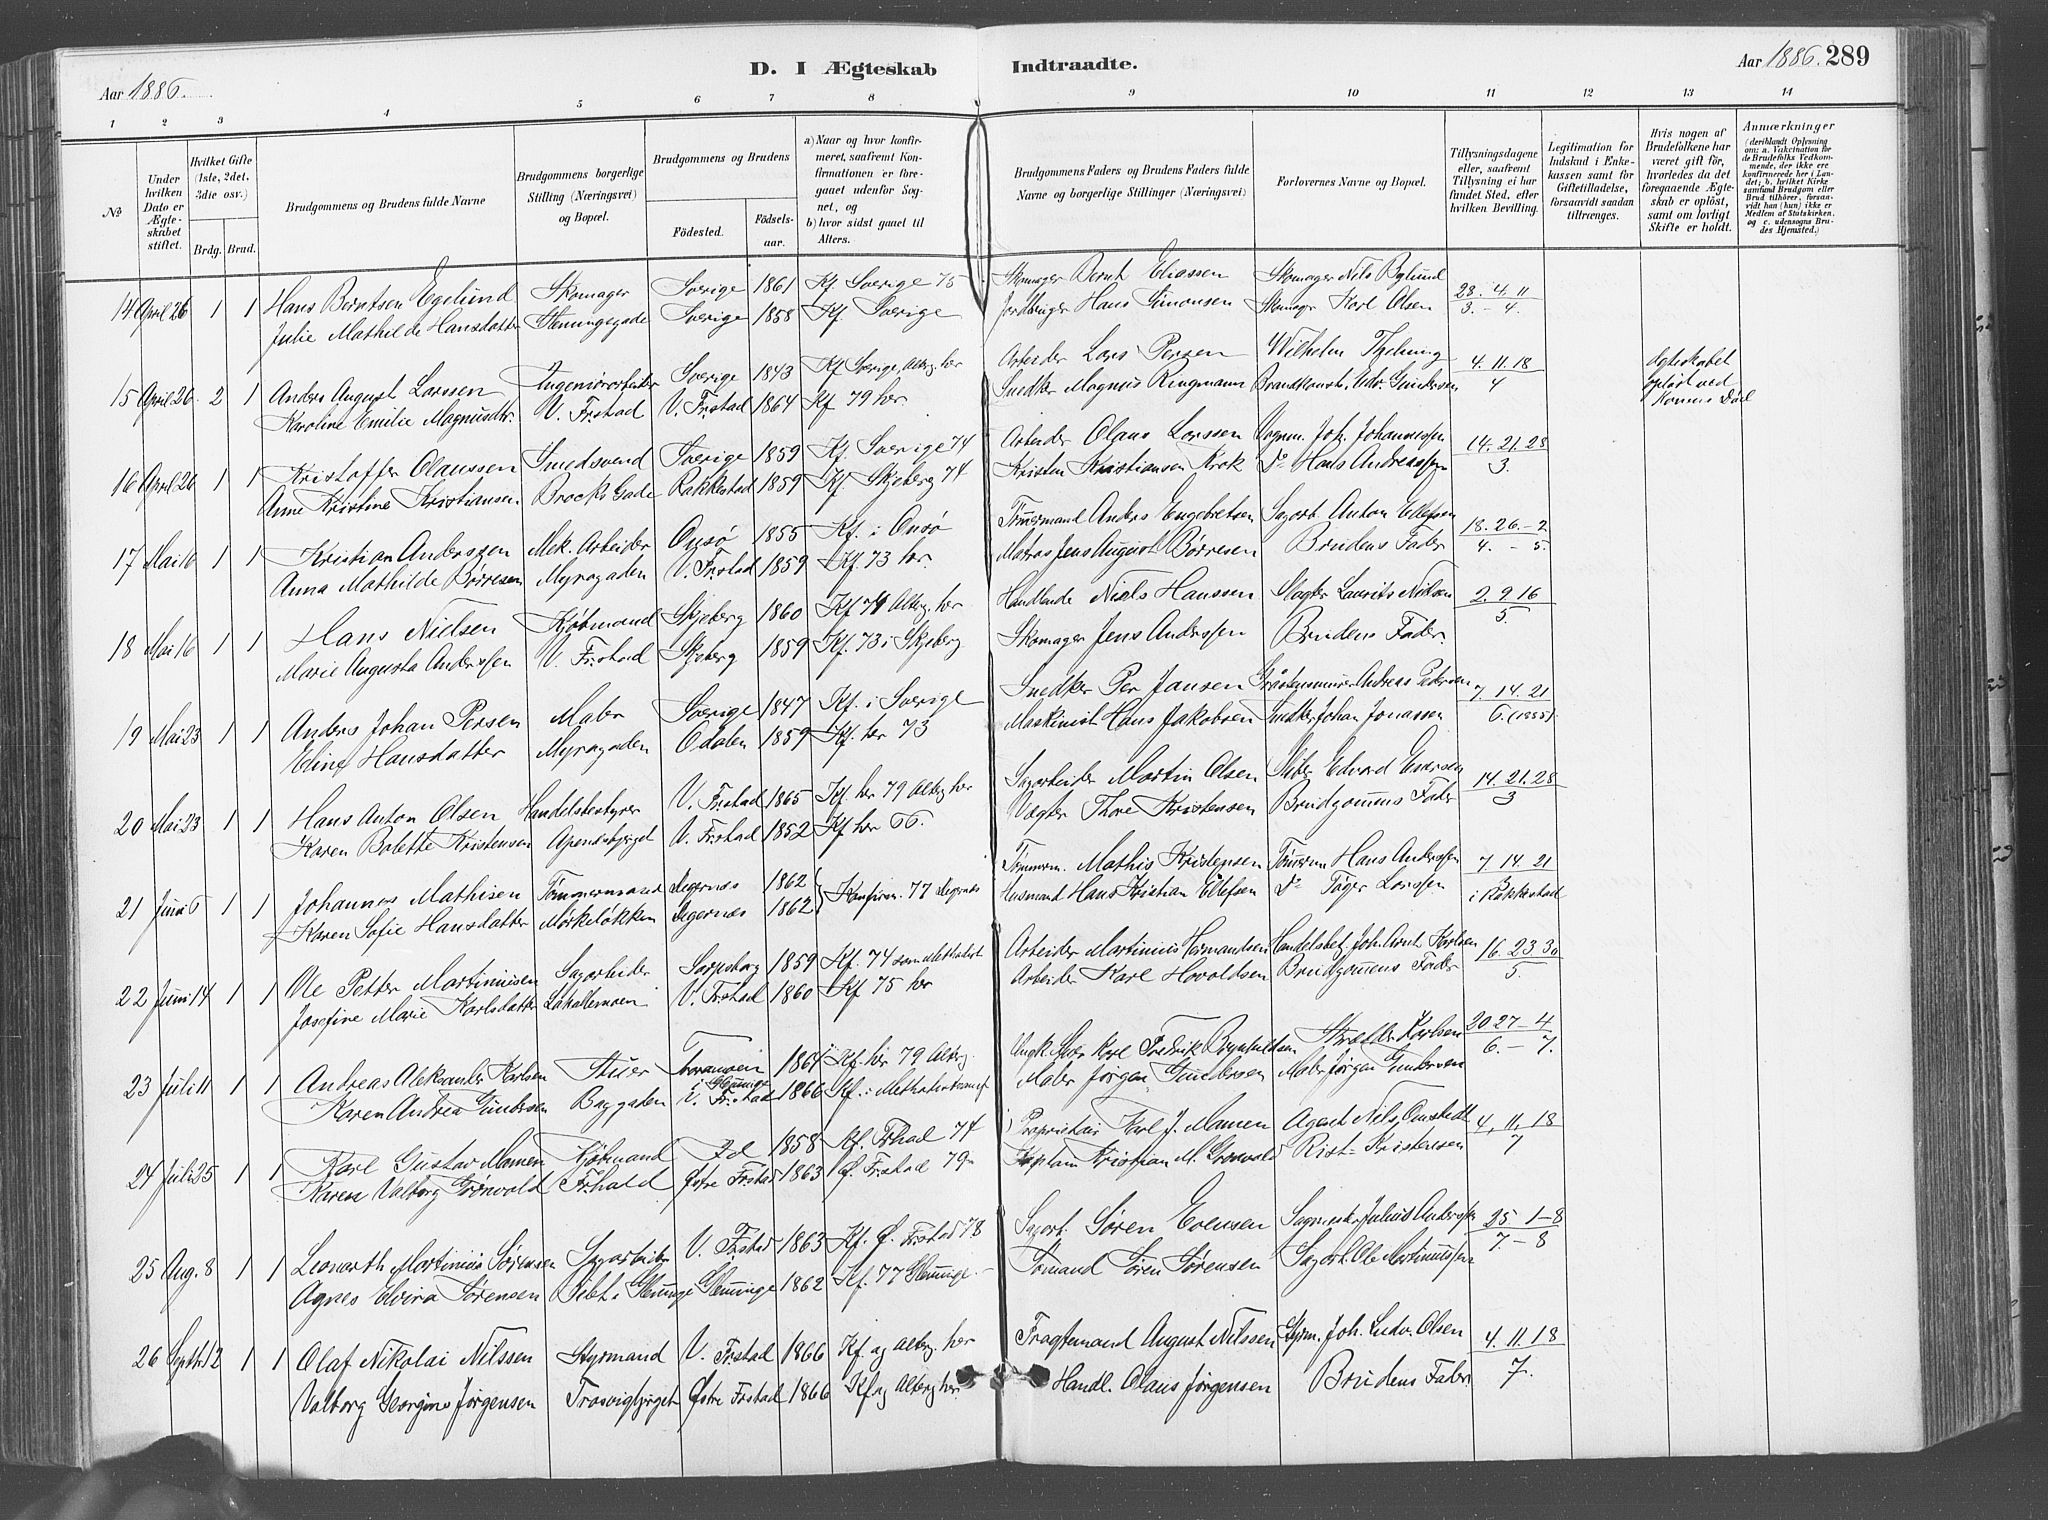 D. I Ægteskab Indtraadte.
Aar 1886.
Aar 1886. 289
1 2 3 4 5 6 7 8 9 10 11 12 13 14
No
Under hvilken Dato er Ægteskabet stiftet.
Hvilket Gifte (1ste, 2det, 3die osv.)
Brdg. Brud.
Brudgommens og Brudens fulde Navne
Brudgommens borgerlige Stilling (Næringsvei) og Bopæl.
Brudgommens og Brudens
Fødested. Fødselsaar.
a) Naar og hvor konfirmeret, saafremt Konfirmationen er foregaaet udenfor Sognet, og
b) hvor sidst gaaet til Alters.
Brudgommens Faders og Brudens Faders fulde Navne og borgerlige Stillinger (Næringsvei)
Forlovernes Navne og Bopæl.
Tillysningsdagene eller, saafremt Tillysning ei har fundet Sted, efter hvilken Bevilling.
Legitimation for Indskud i Enkekassen samt for Giftetilladelse, forsaavidt saadan tiltrænges.
Hvis nogen af Brudefolkene har været gift før, hvorledes da det foregaaende Ægteskab er opløst, samt om lovligt Skifte er holdt.
Anmærkninger (deriblandt Oplysning om: a. Vakcination for de Brudefolks Vedkommende, der ikke ere konfirmerede her i Landet; b. hvilket Kirkesamfund Brudgom eller Brud tilhører, forsaavidt han (hun) ikke er Medlem af Statskirken, og c. udensogns Brudes Hjemsted.)
14 April 26 1 1 Hans Berntsen Egelund Skomager Sverige 1861 Kf Sverige 75 Skomager Bernt Eliassen Skomager Nils Bylund 28. 4. 11
Julie Mathilde Hansdatter Glemmingegade Sverige 1858 Kf Sverige Jordbruger Hans Simonsen Skomagr Karl Olsen 3. – 4.
15 April 26. 2 1 Anders August Larssen Ingeniørarbeider Sverige 1843 Kf Sverige, Alterg. her Arbeider Lars Persen Wilhelm 4. 11. 18 Ægteskabet opløst ved Konens Død
Karoline Emilie Magnusdtr. V. Fr.stad V. Fr.stad 1864 Kf 79 her Snedker Magnus Ringmann Brandkonst. Edv. Gundersen 4
16 April 26 1 1 Kristoffer Olaussen Smedsvend Sverige 1859 Kf. Sverige 74 Arbeider Olaus Larssen Vognm. Joh. Johannessen 14. 21. 28
Anne Kristine Kristiansen Brocks Gade Rakkestad 1859 Kf. Skjeberg 74 Kristen Kristiansen Krok Do Hans Andreassen 3.
17 Mai 16 1 1 Kristian Anderssen Mek. Arbeider Onsø 1855 Kf. i Onsø Tømermand Anders Engebretsen Sagarb. Anton Ellefsen 18. 26. – 2
Anna Mathilde Børresen Myragaden V. Fr.stad 1859 Kf. 73 her. Matros Jens August Børresen Brudens Fader 4. – 5.
18 Mai 16 1 1 Hans Nielsen Kjøbmand Skjeberg 1860 Kf. 74 Alterg. her Handlende Niels Hanssen Slagter Laurits Nilsen 2. 9. 16
Marie Augusta Anderssen V. Fr.stad Skjeberg 1859 Kf. 73 i Skjeberg Skomager Jens Anderssen Brudens Fader. 5.
19 Mai 23 1 1 Anders Johan Persen Maler Sverige 1847 Kf. i Sverige Snedker Per Jansen Gråstensmurer Andreas Pedersen 7. 14. 21
Eline Hansdatter Myragaden Odalen 1859 Kf. her 73 Maskinist Hans Jakobsen Snedker Johan Jonassen 6. (1885)
20 Mai 23 1 1 Hans Anton Olsen Handelsbestyrer V. Fr.stad 1865 Kf. her 79 Alterg her Sagarbeider Martin Olsen Edvard Evensen 14. 21. 28
Karen Bolette Kristensen Apenesbjerget V. Fr.stad 1852 Kf her 66. Vægter Thore Kristensen Brudgommens Fader 3
21 Juni 6 1 1 Johannes Mathisen Tømmermand Degernes 1862 Konfirm. 77 Degernes Tømmerm. Mathis Kristensen Tømerm Hans Anderssen 7. 14. 21
Karen Sofie Hansdatter Mørkeløkken Degernes 1862 Husmand Hans Kristian Ellefsen Do Larssen 3 i Rakkestad
22 Juni 14 1 1 Ole Petter Martiniusen Sagarbeider Sarpsborg 1859 Kf. 74 som Methodist Arbeider Martinius Hermandsen Handelsbet. Joh. Arnt Karlsen 16. 23. 30
Josefine Marie Karlsdatter V. Fr.stad 1860 Kf 75 her Arbeider Karl Havoldsen Brudgommens Fader 5.
23 Juli 11 1 1 Andreas Aleksander Karlsen Stuer 1864 Kf. her 79 Alterg. Karl Fredrik Brynhildsen Karlsen 20 27 – 4
Karen Andrea Gundersen Baggaden i Glemminge Fr.stad 1866 Kf. i Methodistsamf Maler Jørgen Gundersen Maler Jørgen Gundersen 6. – 7.
24 Juli 25 1 1 Karl Gustav Mamen Kjøbmand Id 1858 Kf. Fr.hald 74 Proprietair Karl J. Mamen Agent Nils Omstedt 4. 11. 18
Karen Valborg Grønvold Fr.hald Østre Fr.stad 1863 Ø. Fr.stad 79 Kaptain Kristian M. Grønvold Rist. Kristensen 7
25 Aug. 8 1 1 Leonarth Martinius Sørensen Sagarbeider V. Fr.stad 1863 Kf. Ø. Fr.stad 78 Sagarb. Søren Evensen Sagmester Julius Anderssen 25. 1 – 8
Agnes Elvira Sørensen Glemminge 1862 Kf. 77 Glemminge. Sømand Søren Sørensen Sagarb. Ole Martiniussen 7. – 8
26 Septb. 12 1 1 Olaf Nikolai Nilssen Styrmand V. Fr.stad 1866 Kf. og Alterg. her Fragtemand August Nilssen Styrm. Joh. Ludv. Olsen 4. 11. 18
Valborg Georgine Jørgensen Trosvigbjerget Østre Fr.stad 1866 Kf og Alterg her Handl. Olaus Jørgensen Brudens Fader 7.